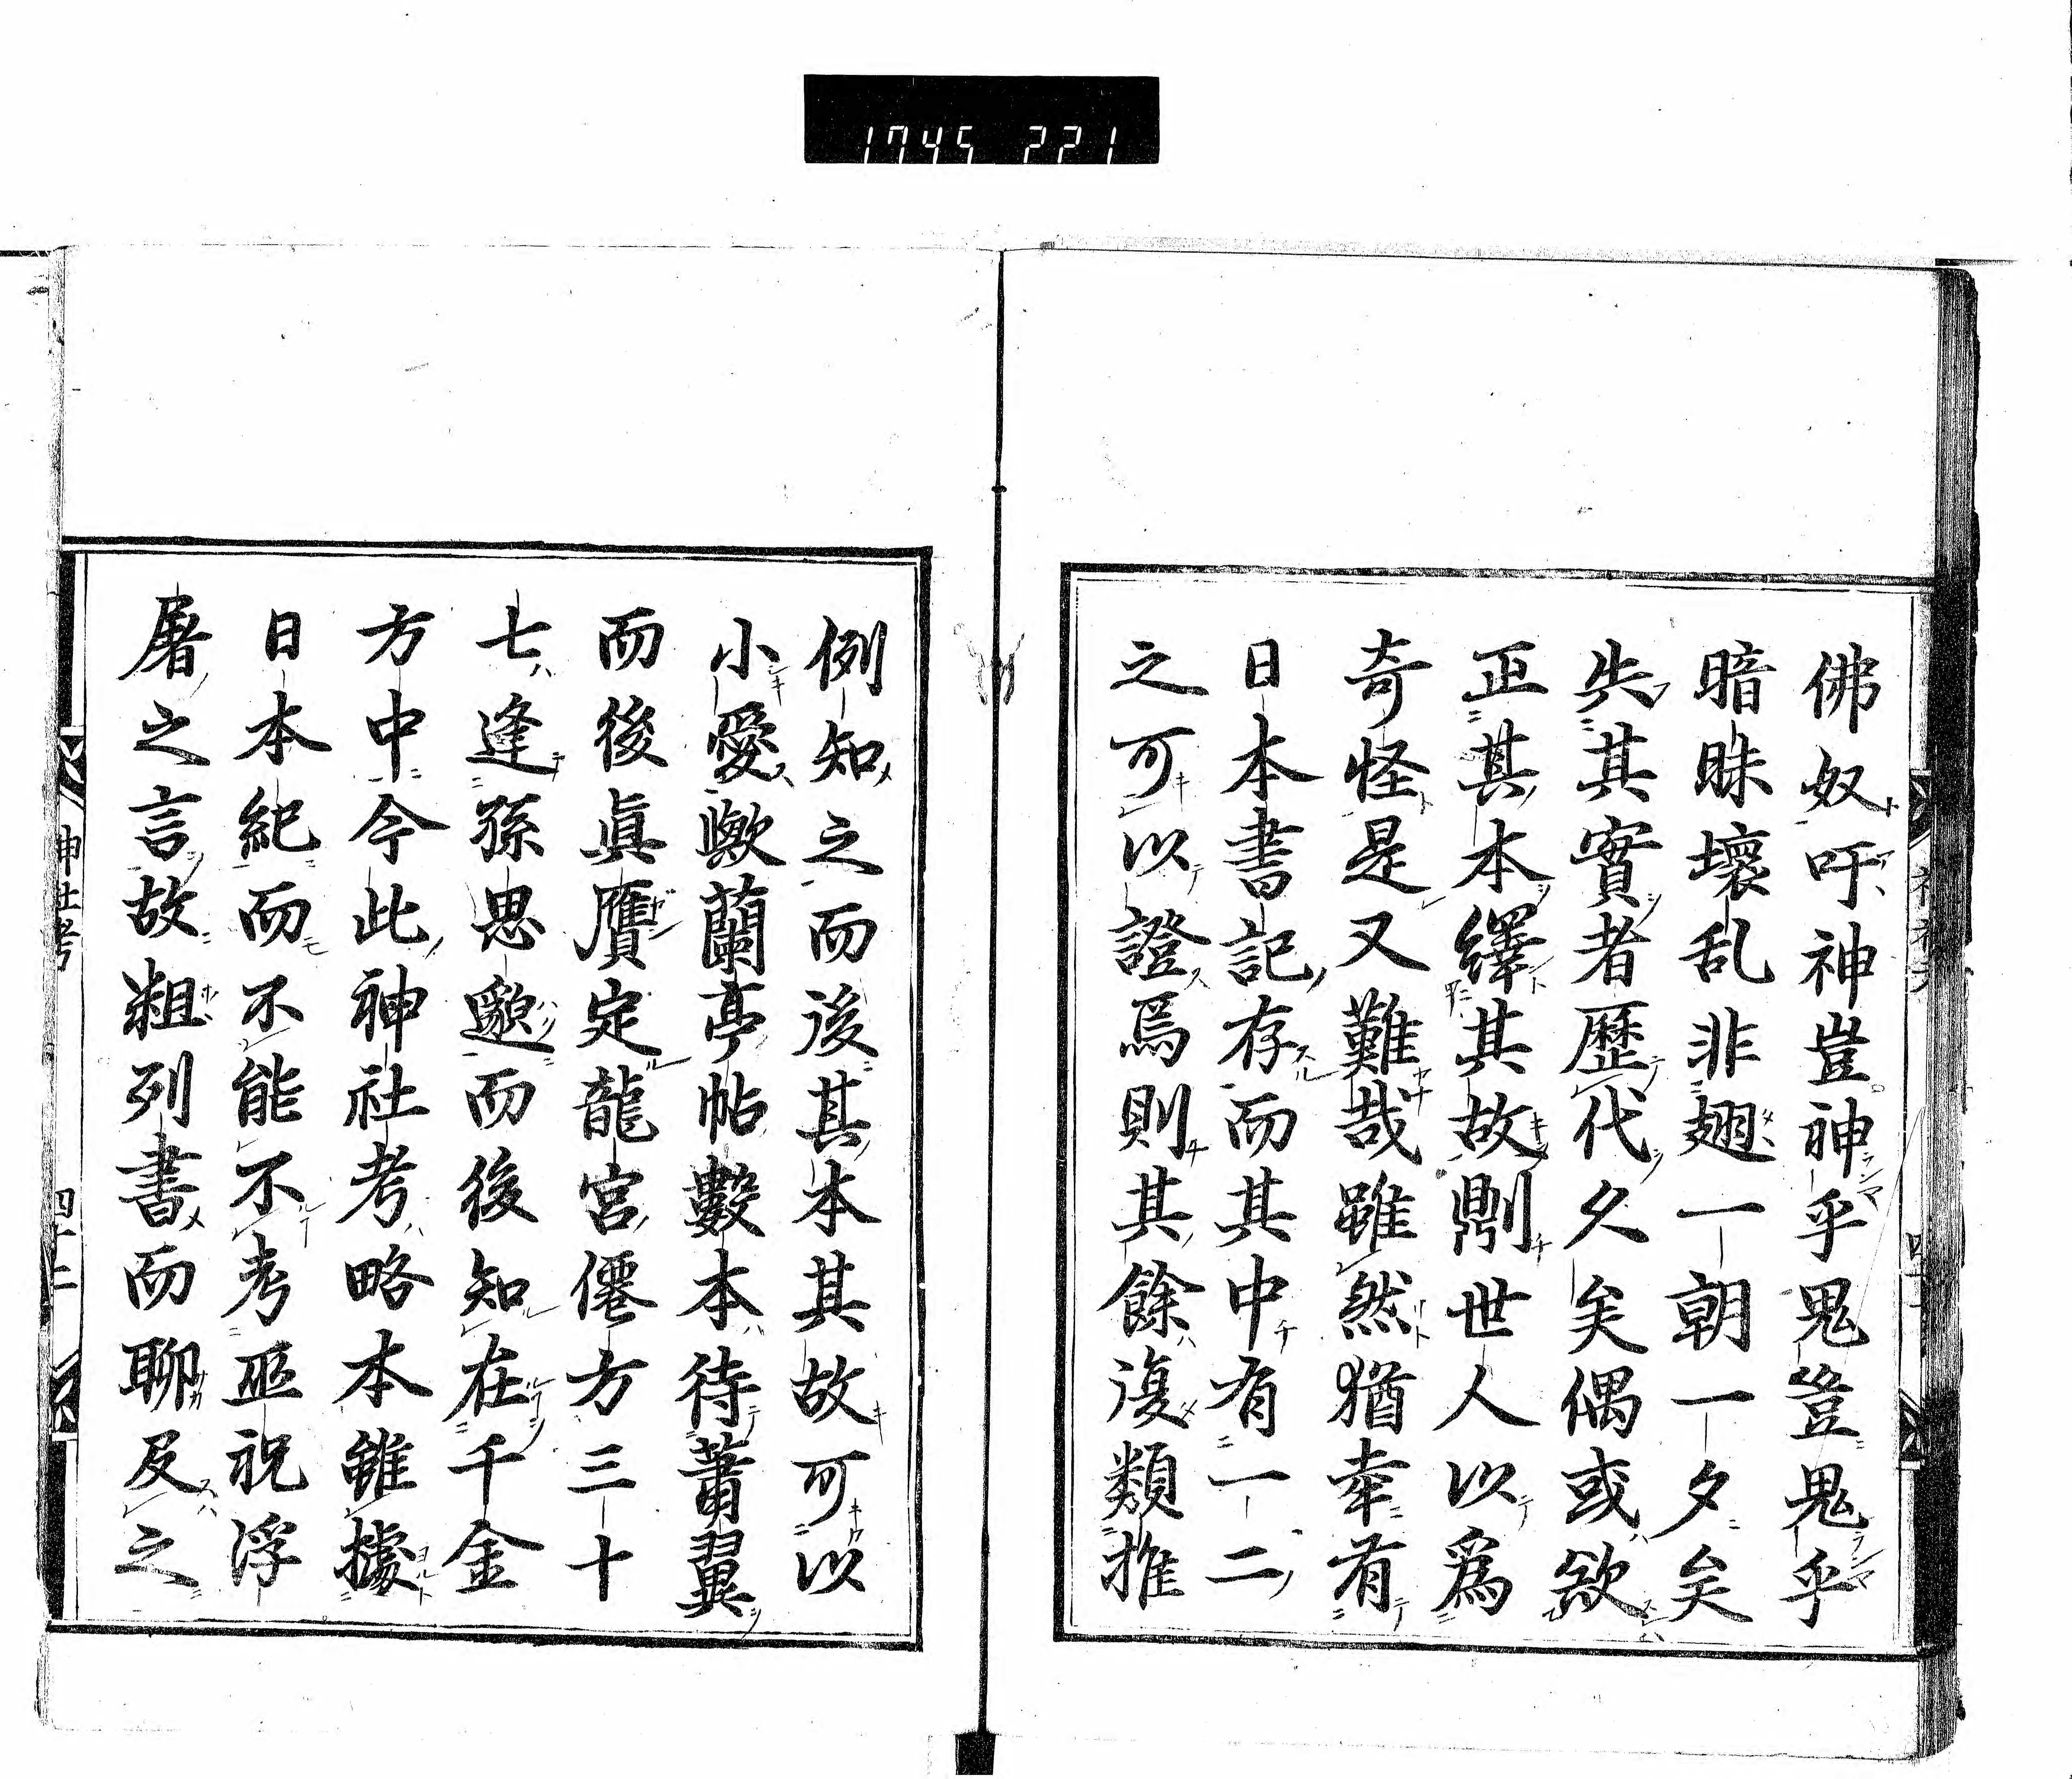 1745 221
佛奴吁神豈神乎鬼豈鬼乎
暗昧壞乱非翅一朝一夕矣
失其實者歷代久矣偶或欲
正其本繹其故則世人以爲
奇怪是又難哉雖然猶幸有
日本書記存而其中有一二
之可以證焉則其餘復類推
例知之而後其本其故可以
小愛歟蘭亭帖數本待蕭翼
而後眞贋定龍宮僊方三十
七逢孫思邈而後知在千金
方中今此神社考略本雖據
日本紀而不能不考巫祝浮
屠之言故粗列書而聊及之
神社考
四十二